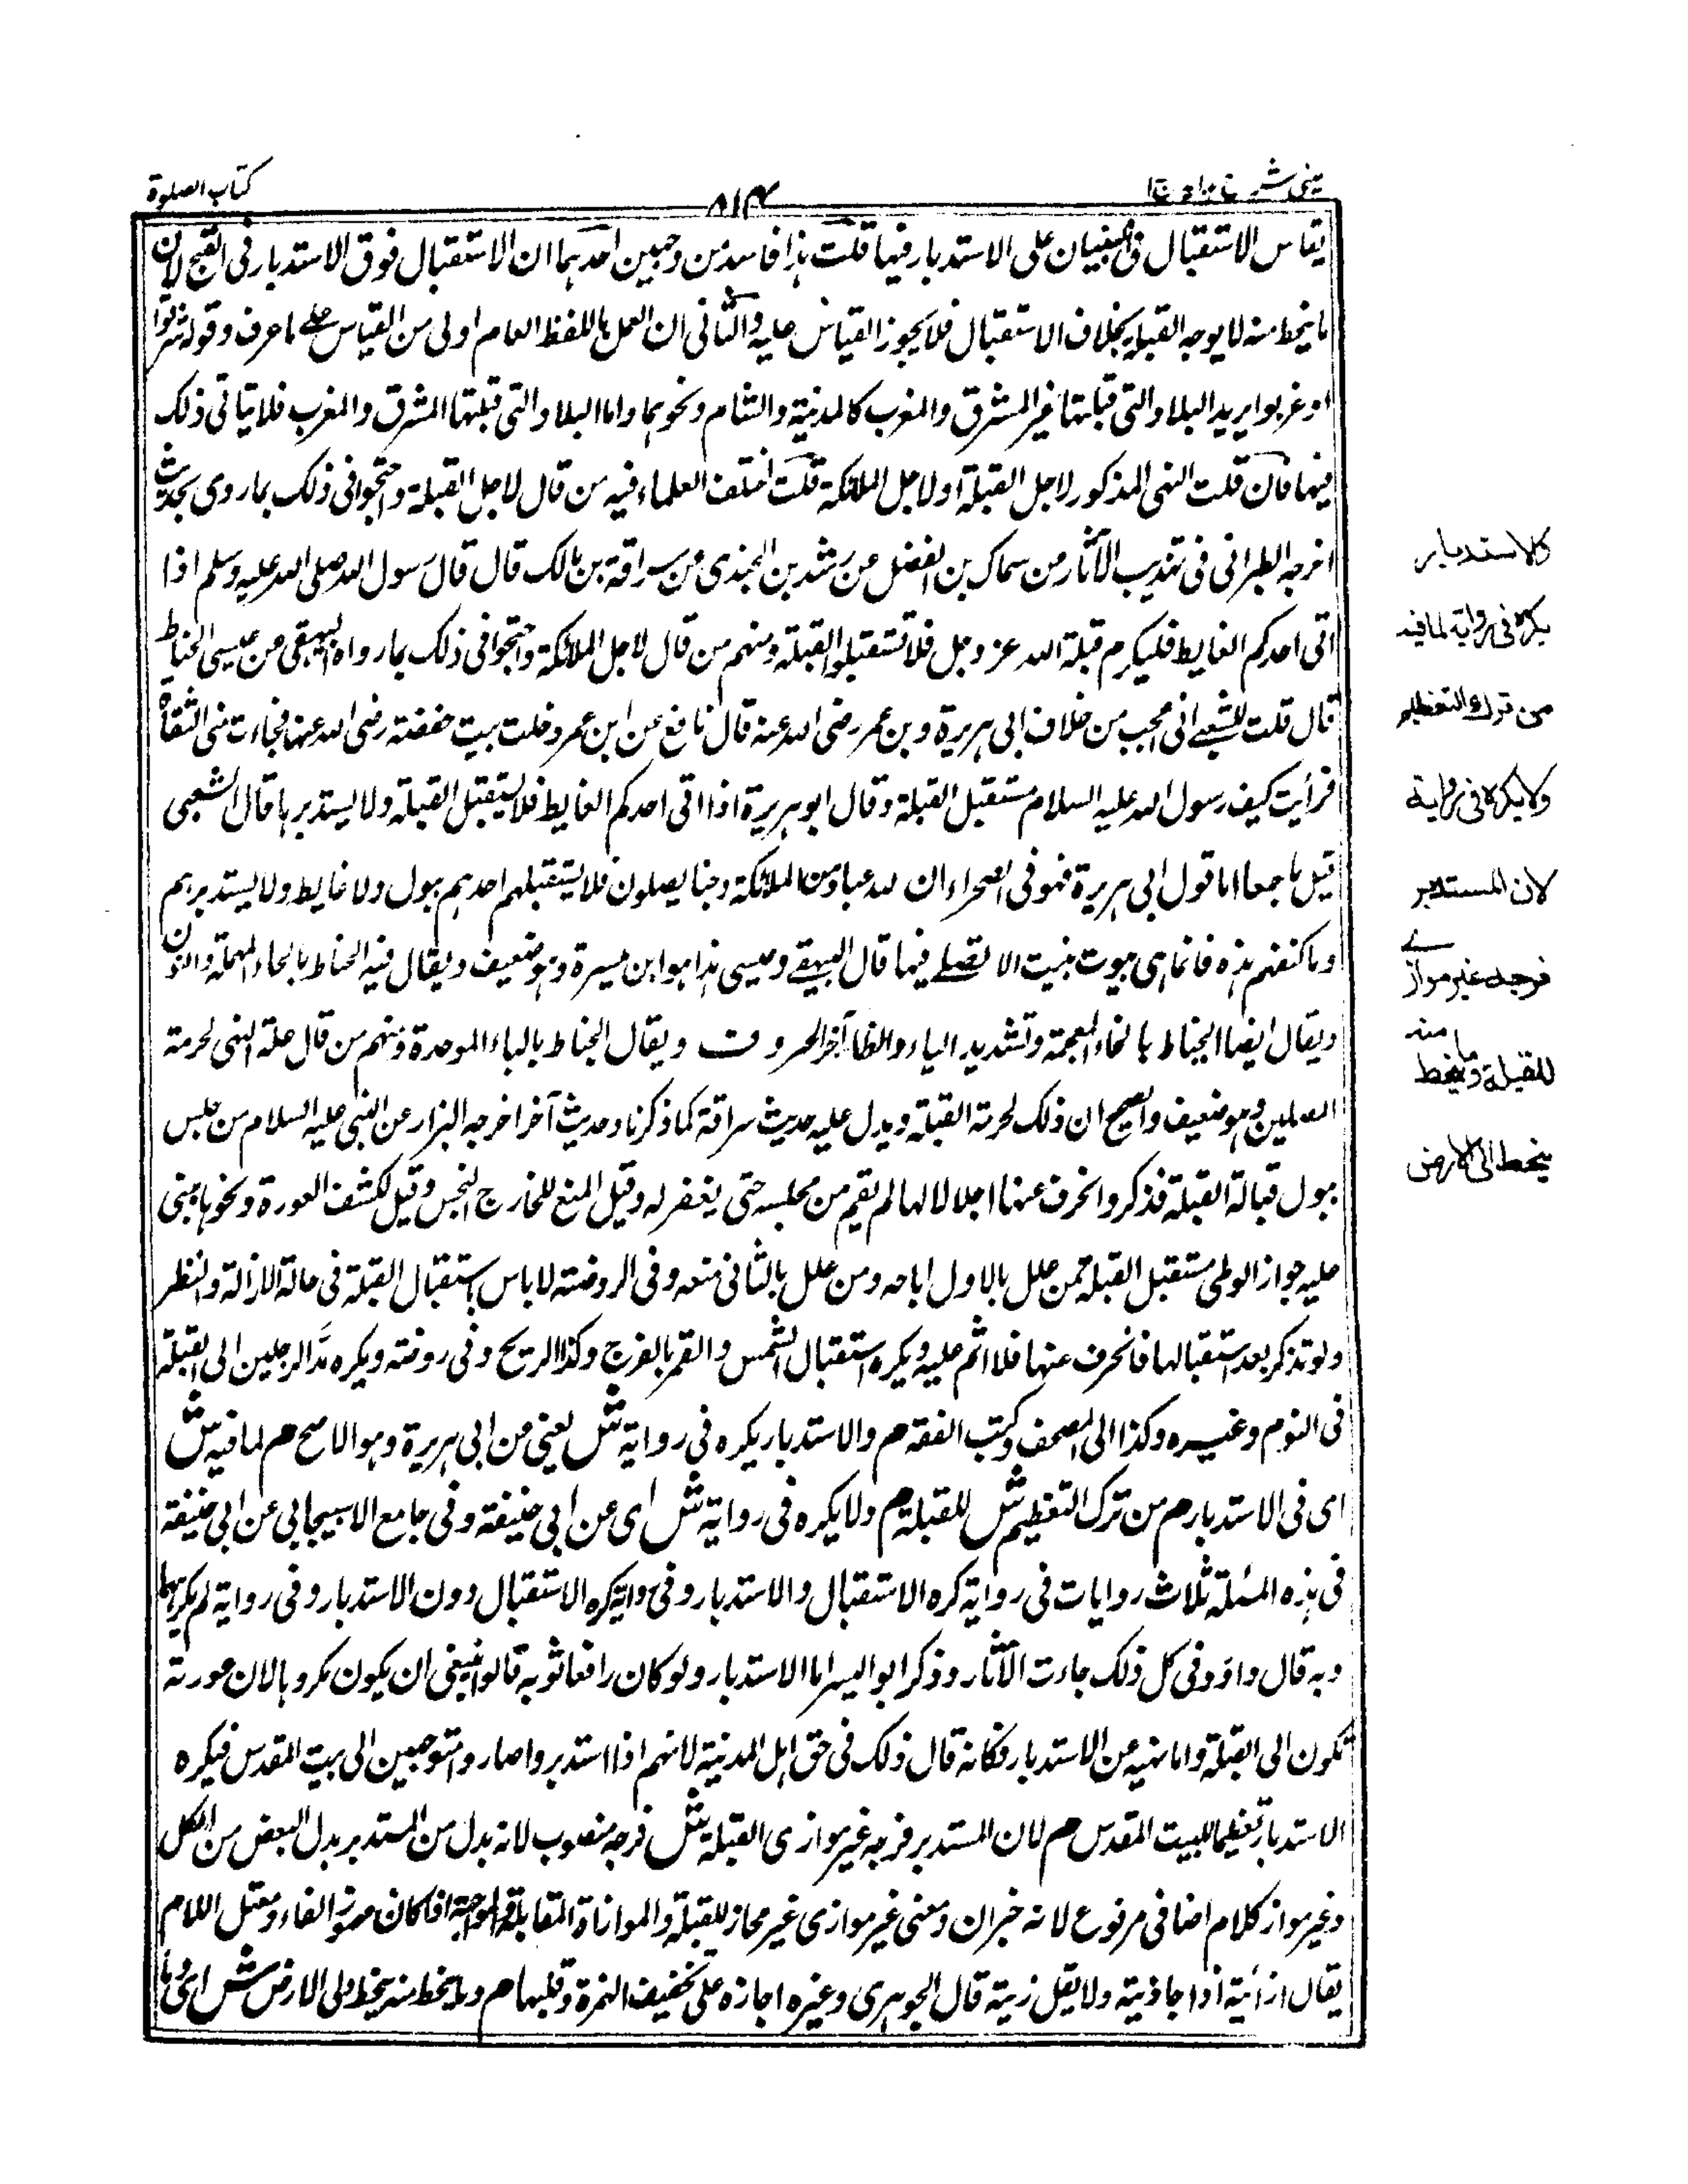 كتاب الصلوة
يقاس الاستقبال فى البنيان على الاستدبار فيها قلت هذا فاسد من وجهين احدهما ان الاستقبال فوق الاستدبار فى القبح لان
ما ينحط منه لا يوجه القبلة بخلاف الاستقبال فلا يجوز القياس عليه والثانى ان العمل باللفظ العام اولى من القياس على ما عرف وقوله شرقوا
او غربوا يريد البلاد التى قبلتها غير المشرق والمغرب كالمدينة والشام ونحوهما واما البلاد التى قبلتها المشرق والمغرب فلا يتاتى ذلك
فيها فان قلت النهى المذكور لاجل القبلة او لاجل الملائكة قلت اختلف العلماء فيه من قال لاجل القبلة واحتجوا فى ذلك بما روى بحديث
اخرجه الطبرانى فى تهذيب الآثار من سماك بن الفضل عن رشدين الجندى عن سراقة بن مالك قال قال رسول الله صلى الله عليه وسلم اذا
اتى احدكم الغايط فليكرم قبلة الله عز وجل فلا تستقبلوا القبلة ومنهم من قال لاجل الملائكة واحتجوا فى ذلك بما رواه البيهقى عن عيسى الحناط
قال قلت للشعبى انى اعجب من خلاف ابى هريرة وبن عمر رضى الله عنه قال نافع عن ابن عمر دخلت بيت حفصة رضى الله عنها فجاءت منى التفاتة
فرأيت كنيف رسول الله عليه السلام مستقبل القبلة وقال ابو هريرة اذا اتى احدكم الغايط فلا يستقبل القبلة ولا يستدبرها قال الشعبى
قيل ما جمعا اما قول ابى هريرة فهو فى الصحراء ان لله عبادا من الملائكة وجنا يصلون فلا يستقبلهم احدهم ببول ولا غايط ولا يستدبرهم
وما كنفهم هذه فانما هى بيوت بنيت لا تصلى فيها قال البيهقى وعيسى هذا هو ابن ميسرة وهو ضعيف ويقال فيه الحناط بالحاء المهملة والنون
ويقال ايضا الخياط بالخاء المعجمة وتشديد الياء والطاء آخر الحروف ويقال الخباط بالباء الموحدة ومنهم من قال علة النهى لحرمة
المصلين وهو ضعيف والصحيح ان ذلك لحرمة القبلة ويدل عليه حديث سراقة كما ذكرنا وحديث آخر اخرجه البزار عن النبى عليه السلام من جلس
ببول قبالة القبلة فذكر وانحرف عنها اجلالا لها لم يقم من مجلسه حتى يغفر له وقيل المنع للخارج النجس وقيل لكشف العورة ونحوها مبنى
عليه جواز الوطى مستقبل القبلة فمن علل بالاول اباحه ومن علل بالثانى منعه وفى الروضة لا باس باستقبال القبلة فى حالة الازالة والنظر
ولو تذكر بعد استقبالها فانحرف عنها فلا اثم عليه ويكره استقبال الشمس والقمر بالفرج وكذا الريح وفى روضته ويكره مد الرجلين الى القبلة
فى النوم وغيره وكذا الى المصحف وكتب الفقه م والاستدبار يكره فى رواية ش يعنى من ابى هريرة وهو الاصح م لما فيه ش
اى فى الاستدبار م من ترك التعظيم ش للقبلة م ولا يكره فى رواية ش اى عن ابى حنيفة وفى جامع الاسبيجابى عن ابى حنيفة
فى هذه المسئلة ثلاث روايات فى رواية كره الاستقبال والاستدبار وفى رواية كره الاستقبال دون الاستدبار وفى رواية لم يكرههما
وبه قال داؤد وفى كل ذلك جاءت الآثار وذكر ابو اليسر اما الاستدبار ولو كان رافعا ثوبه قالوا ينبغى ان يكون مكروها لان عورته
تكون الى القبلة واما نهيه عن الاستدبار فكانه قال ذلك فى حق اهل المدينة لانهم اذا استدبروا صاروا متوجهين الى بيت المقدس فيكره
الاستدبار تعظيما لبيت المقدس م لان المستدبر فرجه غير موازى القبلة ش فرجه منصوب لانه بدل من المستدبر بدل البعض من الكل
وغير مواز كلام اضافى مرفوع لانه خبر ان ومعنى غير موازى غير محاز للقبلة والموازاة المقابلة والمواجهة اذا كان مهموز الفاء ومعتل اللام
يقال ازأيته اذا حاذيته ولا يقل زيته قال الجوهرى وغيره اجازه على تخفيف الهمزة وقلبها م وما ينحط منه ينحط الى الارض ش اى وما
كالاستدبار
يكره فى رواية لما فيه
من ترك التعظيم
ولا يكره فى رواية
لان المستدبر
فرجه غير موازى
للقبلة وما ينحط منه
ينحط الى الارض